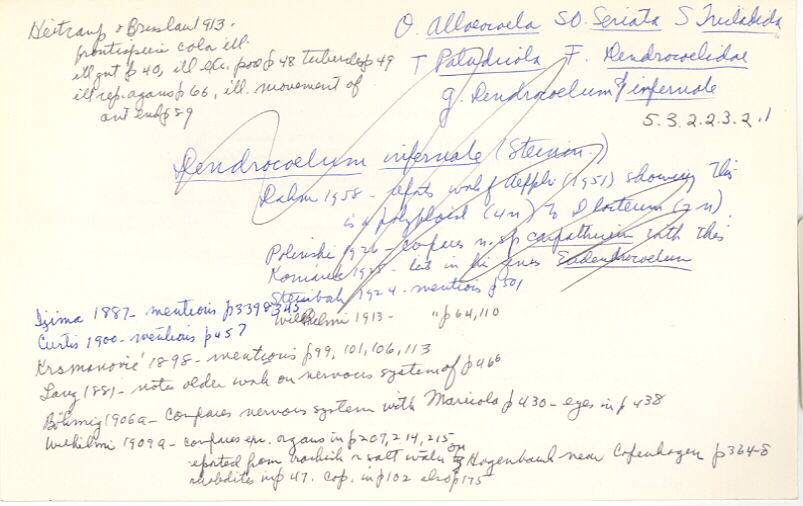 O. Alloeocoela SO. Seriata S Tricladida
T Paludicola F. Dendrocoelidae
g. Dendrocoelum infernale
5.3.2.2.3.2.1
frontispiece color ill.
ill gut p 40, ill exc. pore p 48 tubercle p 49
ill rep. organs p 66, ill. movement of
ant end p 89
Dendrocoelum infernale (Steinm.)
1958 - work of Aeppli (1951) showing this
is a polyploid (4n) to D lacteum (2n)
Polinski 1926 - compares n. sp carpathicum with this
Komárek 1925 - in his genus Eudendrocoelum
1924 - mentions p 501
Ijima 1887 - mentions p 339 & 345
Wilhelmi 1913 - " p 64, 110
Curtis 1900 - mentions p 457
Krsmanović 1898 - mentions p 99, 101, 106, 113
Lang 1881 - notes older work on nervous system of p 466
Böhmig 1906a - compares nervous system with Maricola p 430 - eyes in p 438
Wilhelmi 1909a - compares exc. organs in p 207, 214, 215
reported from brackish or salt water near Copenhagen p 364-8
rhabdites in p 47. cop. in p 102 also p 175